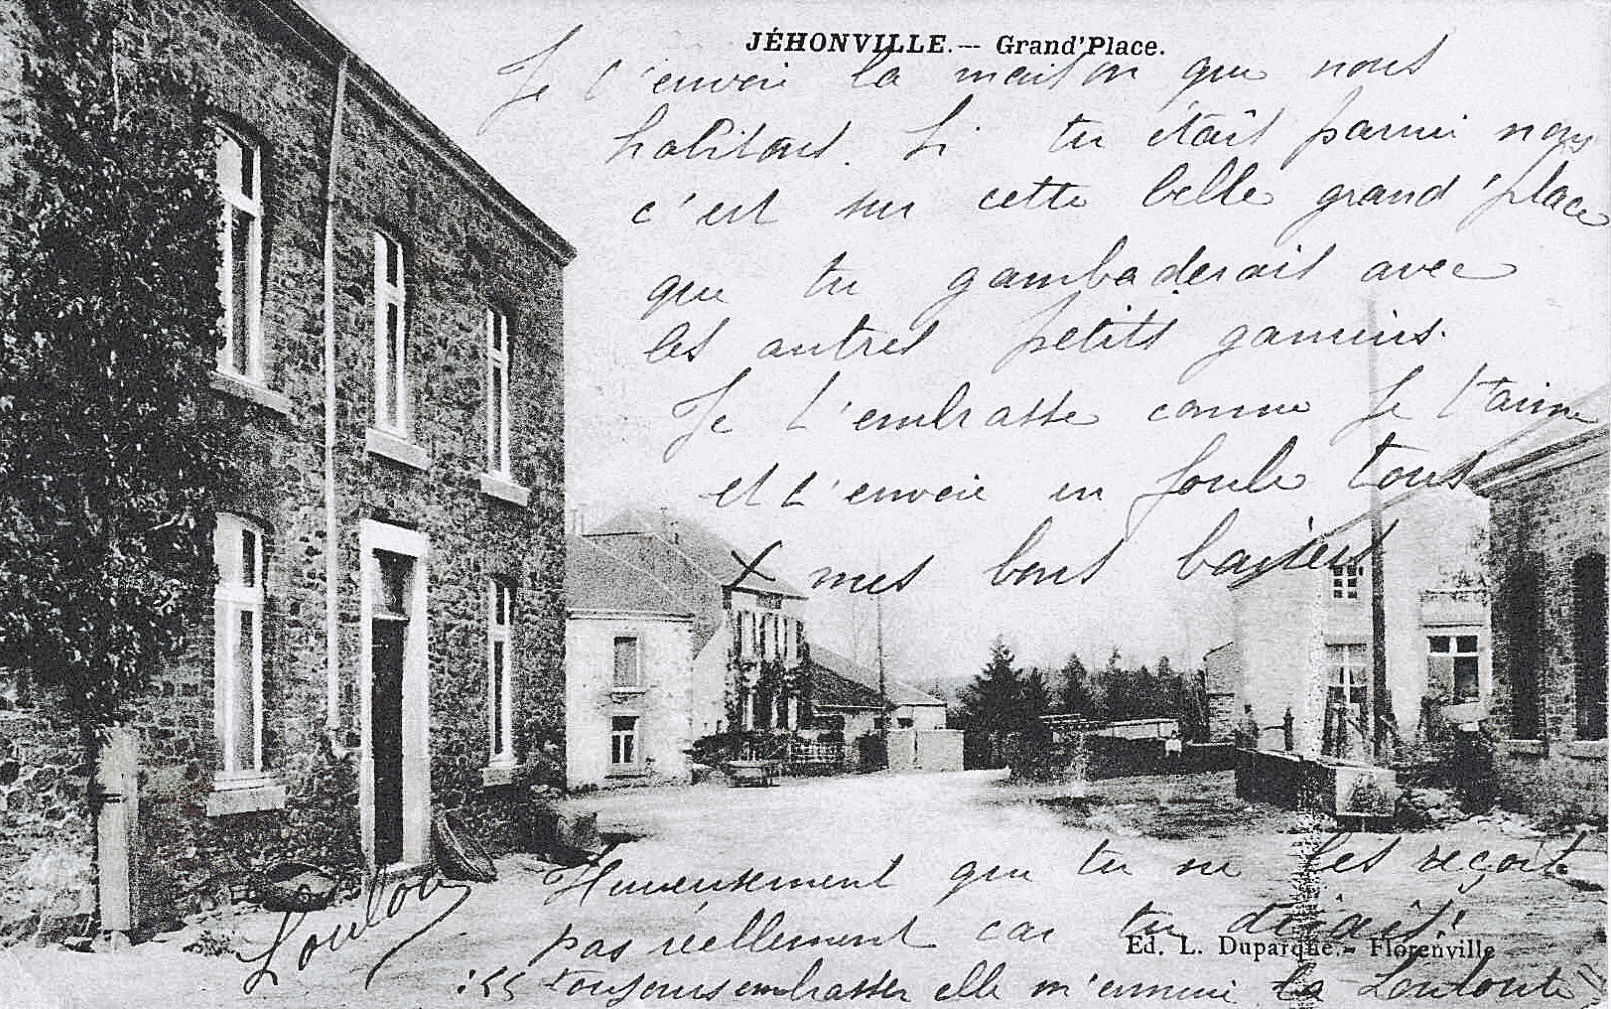 JÉHONVILLE. — Grand'Place.
Je t'envoie la maison que nous
habitons. Si tu était parmi nous
c'est sur cette belle grand'place
que tu gambaderait avec
les autres petits gamins.
Je t'embrasse comme je t'aime
et t'envoie en foule tous
mes bons baisers
Heureusement que tu ne les reçoit
pas réellement car tu dirait:
Ed. L. Duparque.- Florenville
toujours embrasser elle m'ennuie la Louloute
Loulou